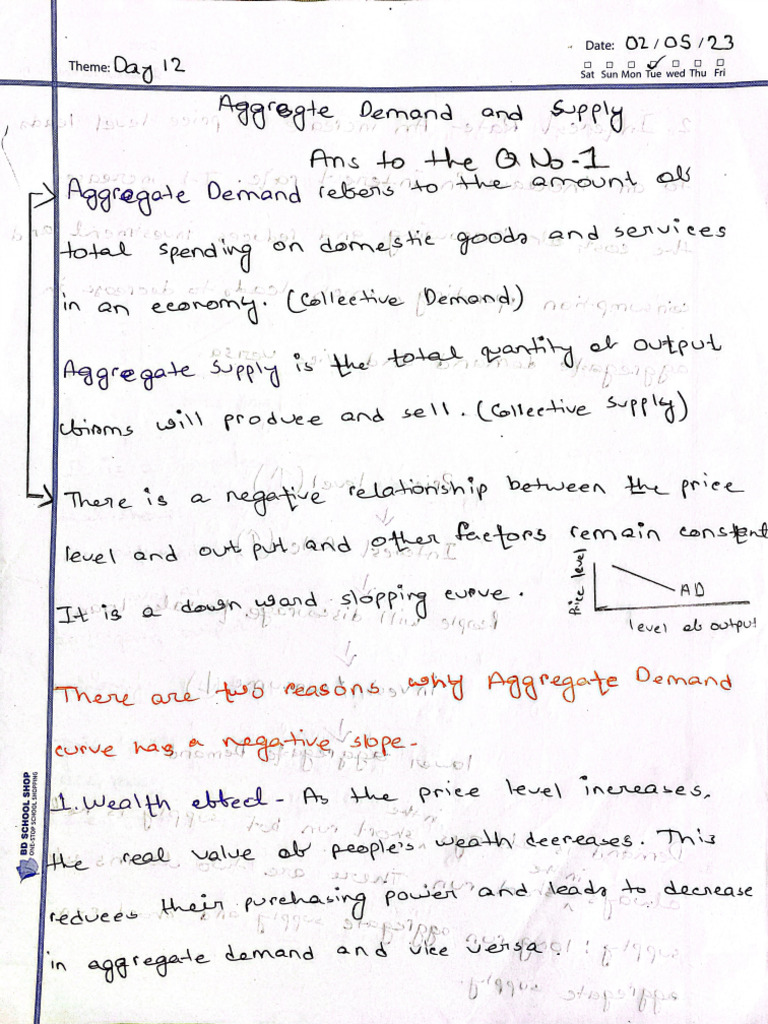 Date: 02/05/23
Theme: Day 12
Sat Sun Mon Tue wed Thu Fri
Aggregate Demand and Supply
Ans to the Q No-1
Aggregate Demand refers to the amount of
total spending on domestic goods and services
in an economy. (Collective Demand)
Aggregate Supply is the total quantity of output
firms will produce and sell. (Collective Supply)
There is a negative relationship between the price
level and out put and other factors remain constent
It is a down ward slopping curve.
Price level
AD
level of output
There are two reasons why Aggregate Demand
curve has a negative slope-
1. Wealth effect - As the price level increases,
the real value of people's weath decreases. This
reduces their purchasing power and leads to decrease
in aggregate demand and vice versa.
BD SCHOOL SHOP
ONE-STOP SCHOOL SHOPPING